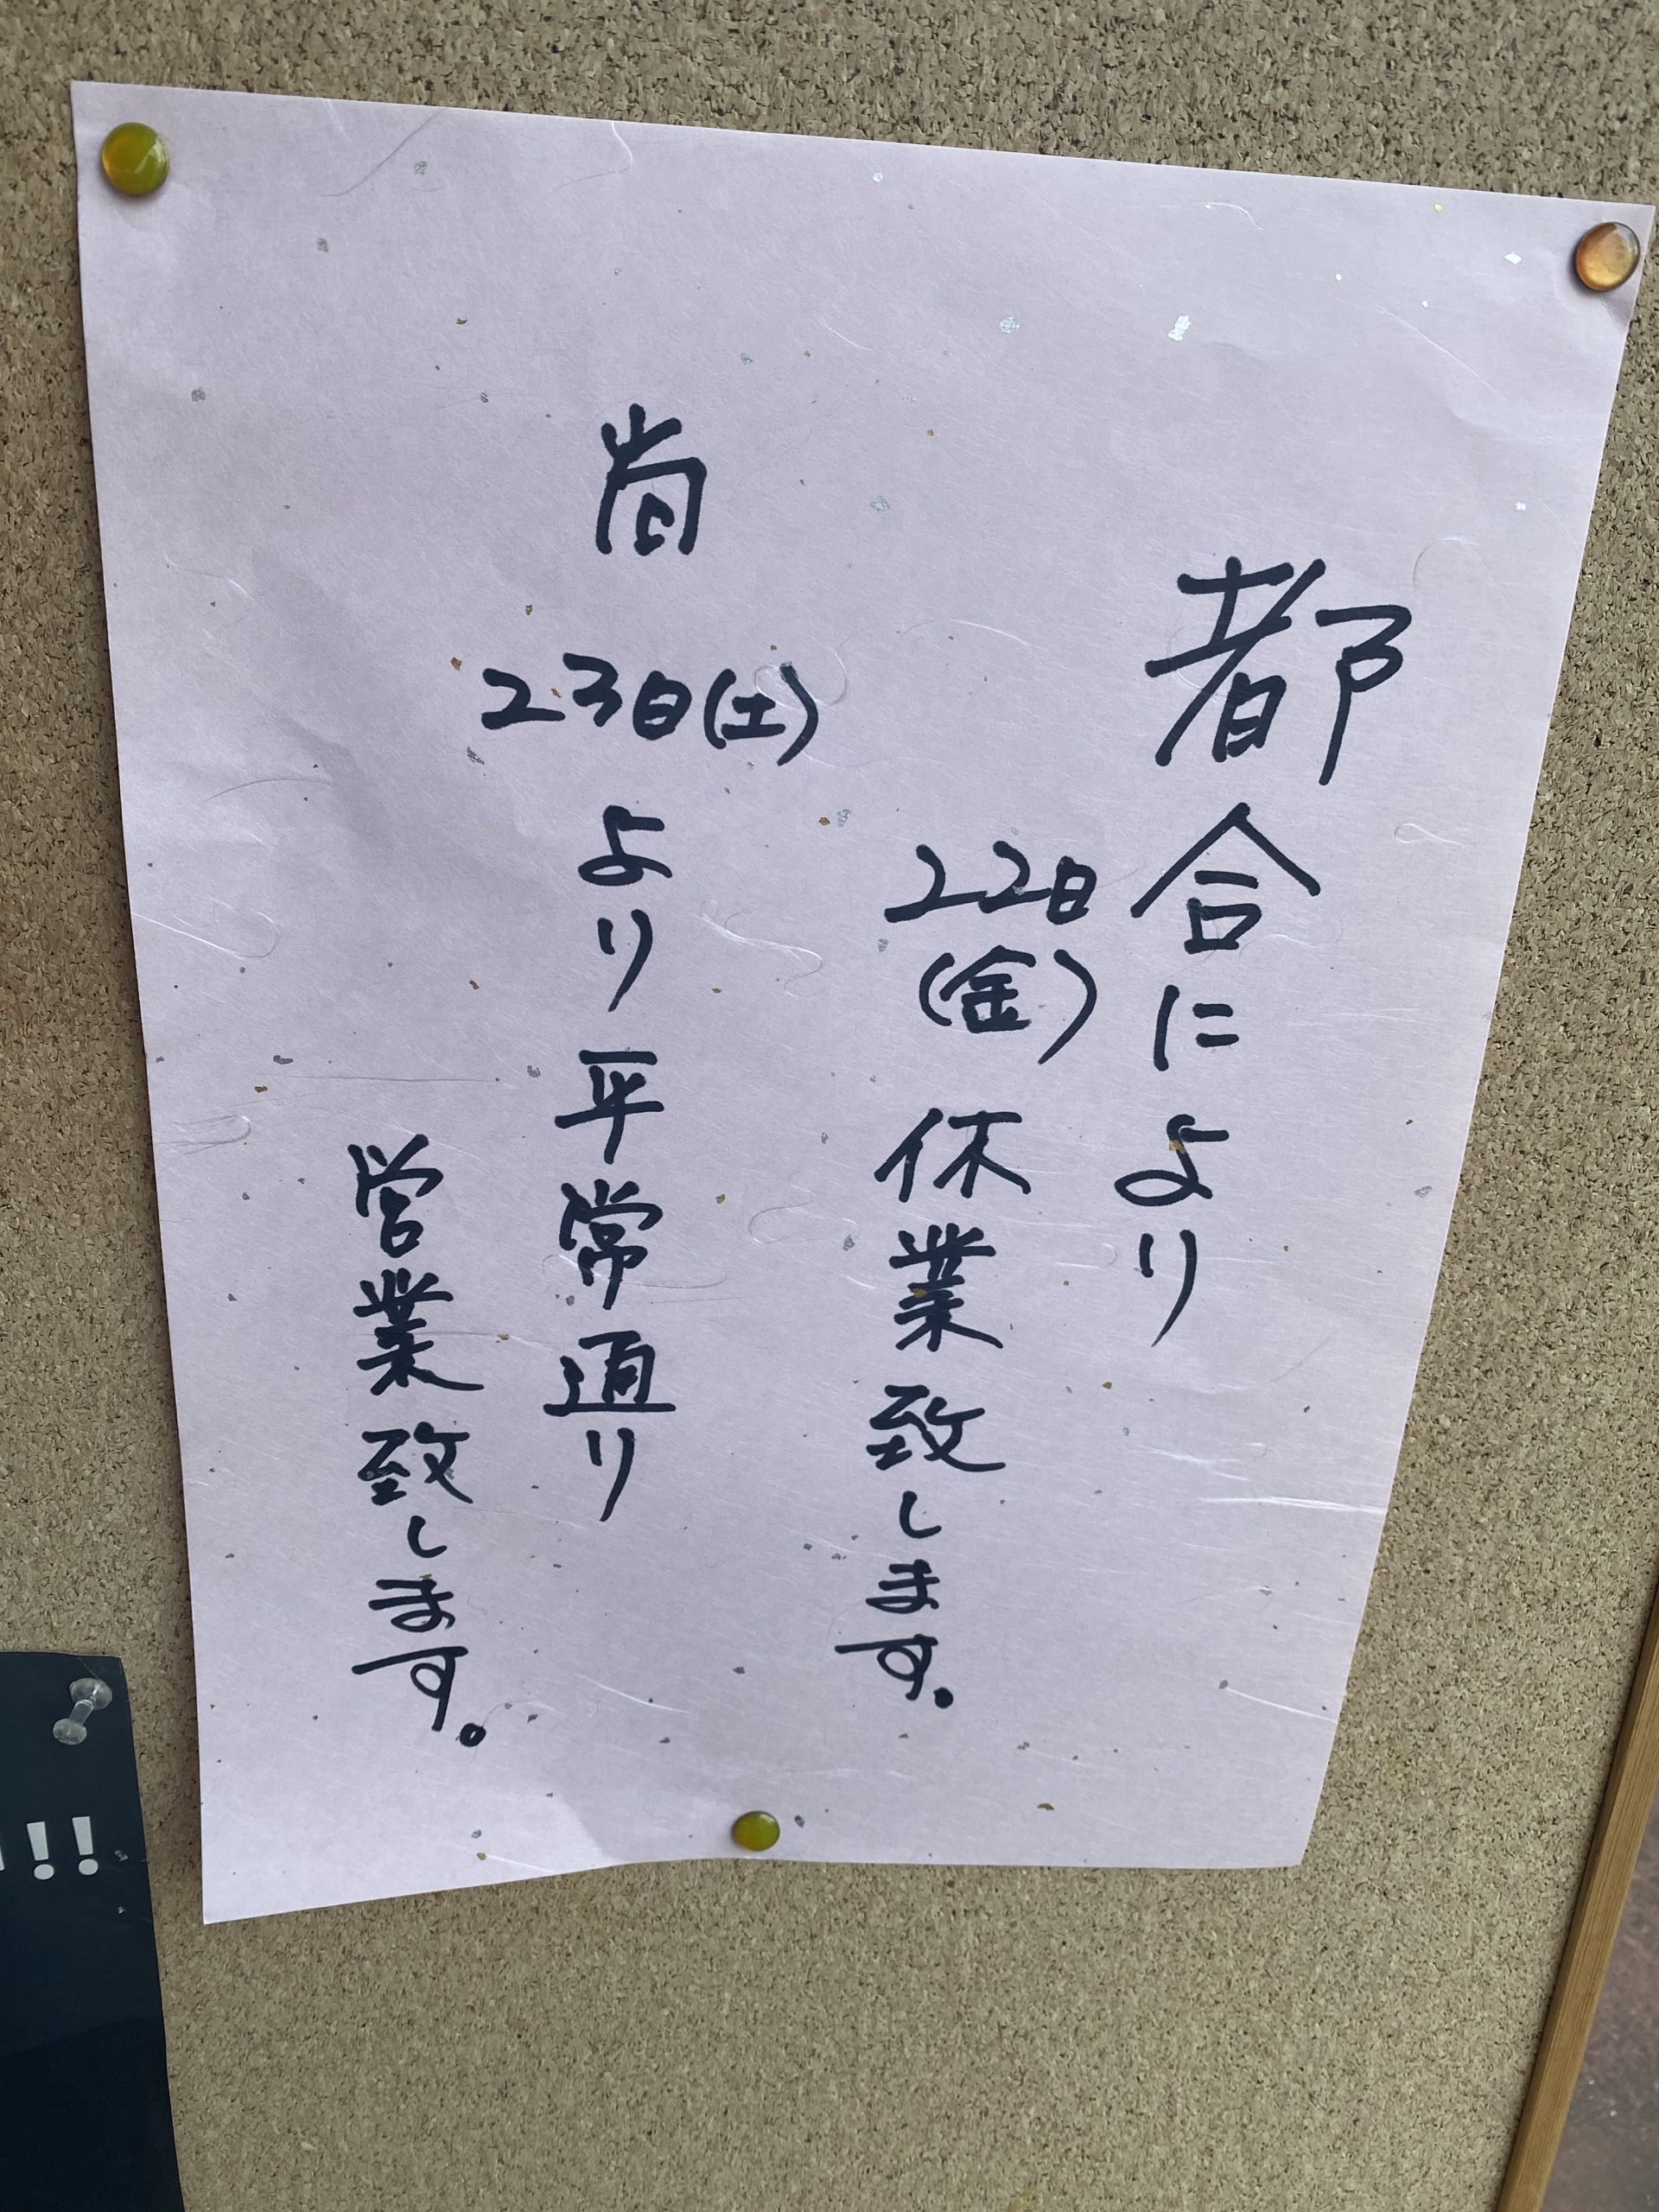 都合により
22日(金)休業致します。
尚23日(土)より平常通り
営業致します。
!!